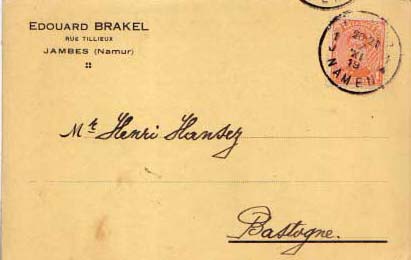 EDOUARD BRAKEL
RUE TILLIEUX
JAMBES (Namur)
20-21
XI
19
NAMEN
Mr Henri Hansez
Bastogne.